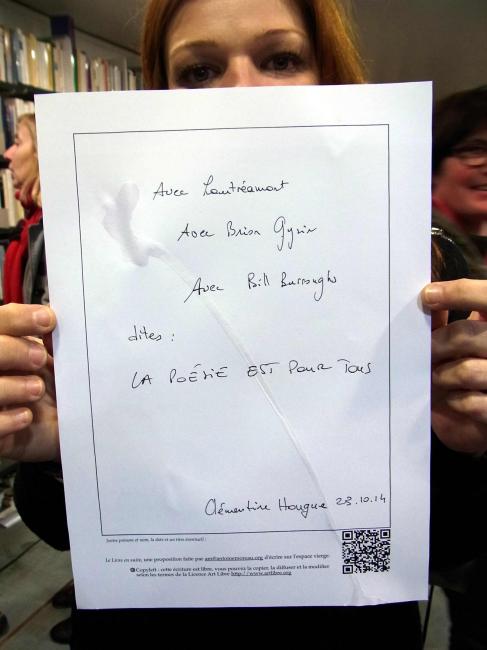 Avec Lautréamont
Avec Brion Gysin
Avec Bill Burroughs
dites :
LA POÉSIE EST POUR TOUS
Clémentine Hougue 23.10.14
(votre prénom et nom, la date et un titre éventuel) :
Le Livre en suite, une proposition faite par am@antoinemoreau.org d'écrire sur l'espace vierge.
Copyleft : cette écriture est libre, vous pouvez la copier, la diffuser et la modifier
selon les termes de la Licence Art Libre http://www.artlibre.org